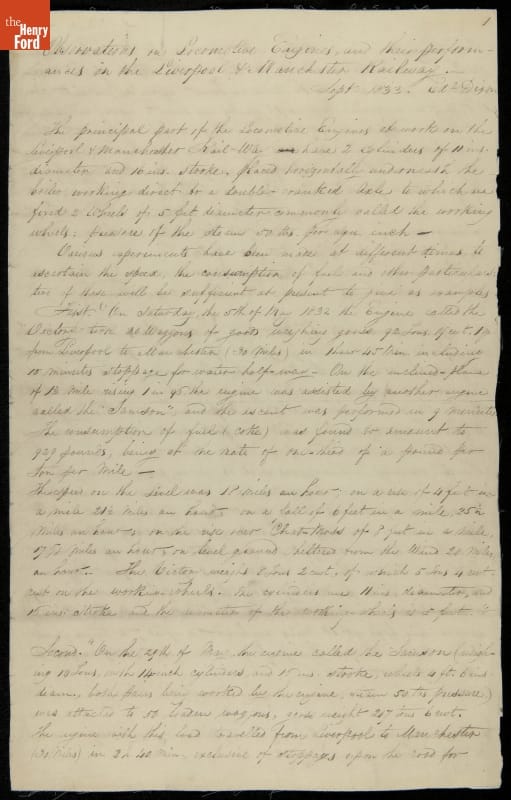 the
Henry
Ford
1
Observations on Locomotive Engines, and their perform-
ances on the Liverpool & Manchester Railway.
Sept 1833.
The principal part of the Locomotive Engines at work on the
Liverpool & Manchester Rail-Way have 2 Cylinders of 11 ins.
diameter and 16 ins. stroke, placed horizontally underneath the
boiler, working direct to a double cranked Axle to which are
fixed 2 Wheels of 5 feet diameter commonly called the working
wheels; pressure of the steam 50 lbs. per square inch —
Various experiments have been made at different times to
ascertain the speed, the consumption of fuel and other particulars
of these will be sufficient at present to give as examples
First." On Saturday, the 5th of May 1832 the Engine called the
Victory took 20 Waggons of goods weighing gross 92 tons 19 cwt. 1 qr
from Liverpool to Manchester (30 Miles) in 1 hour 45 Min. including
10 minutes stoppage for water half-way — On the inclined plane
of 1½ Mile rising 1 in 95 the engine was assisted by another engine
called the "Samson", and the ascent was performed in 9 minutes
The consumption of fuel (coke) was found to amount to
929 pounds, being at the rate of one-third of a pound per
ton per Mile —
The speed on the level was 18 Miles an hour; on a rise of 4 feet in
a mile 21½ Miles an hour on a fall of 6 feet in a mile, 25½
Miles an hour; on the rise over "Chat-Moss" of 8 feet in a mile,
17⅝ Miles an hour on level ground sheltered from the Wind 20 Miles
an hour. The Victory weighs 8 tons 2 cwt, of which 5 tons 4 cwt
rest on the working wheels. The cylinders are 11 ins. diameter, and
16 ins. stroke and the diameter of the working wheels is 5 feet.
Second." On the 29th of May, the engine called the Samson (weigh-
ing 10 tons, with 14 inch cylinders and 16 ins. stroke, wheels 4 ft. 6 ins
diam, both pairs being worked by the engine, steam 50 lbs pressure,)
was attached to 50 loaden wagons, gross weight 247 tons 6 cwt.
The engine with this load travelled from Liverpool to Manchester
(30 Miles) in 2 h 40 min. exclusive of stoppages upon the road for